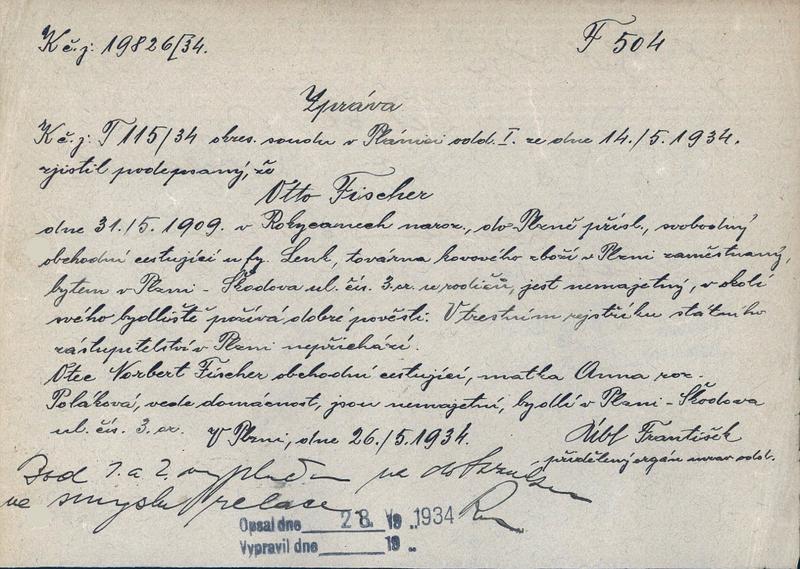 K č.j: 19826/34.
F 504
Zpráva
K č.j: T 115/34 okres. soudu v Plánici odd. I. ze dne 14./5.1934.
zjistil podepsaný, že
Otto Fischer
dne 31./5.1909. v Rokycanech naroz., do Plzně přísl., svobodný
obchodní cestující u fy. Lenk, továrna kovového zboží v Plzni zaměstnaný,
bytem v Plzni - Škodova ul. čís. 3. u rodičů, jest nemajetný, v okolí
svého bydliště požívá dobré pověsti. V trestním rejstříku státního
zástupitelství v Plzni nepřichází.
Otec Norbert Fischer obchodní cestující, matka Anna roz.
Poláková, vede domácnost, jsou nemajetní, bydlí v Plzni - Škodova
ul. čís. 3.
V Plzni, dne 26./5.1934.
František
přidělený orgán mrav. odd.
Bod 1. a 2.
ve smyslu relace
Opsal dne 28. V 19 1934
Vypravil dne 19